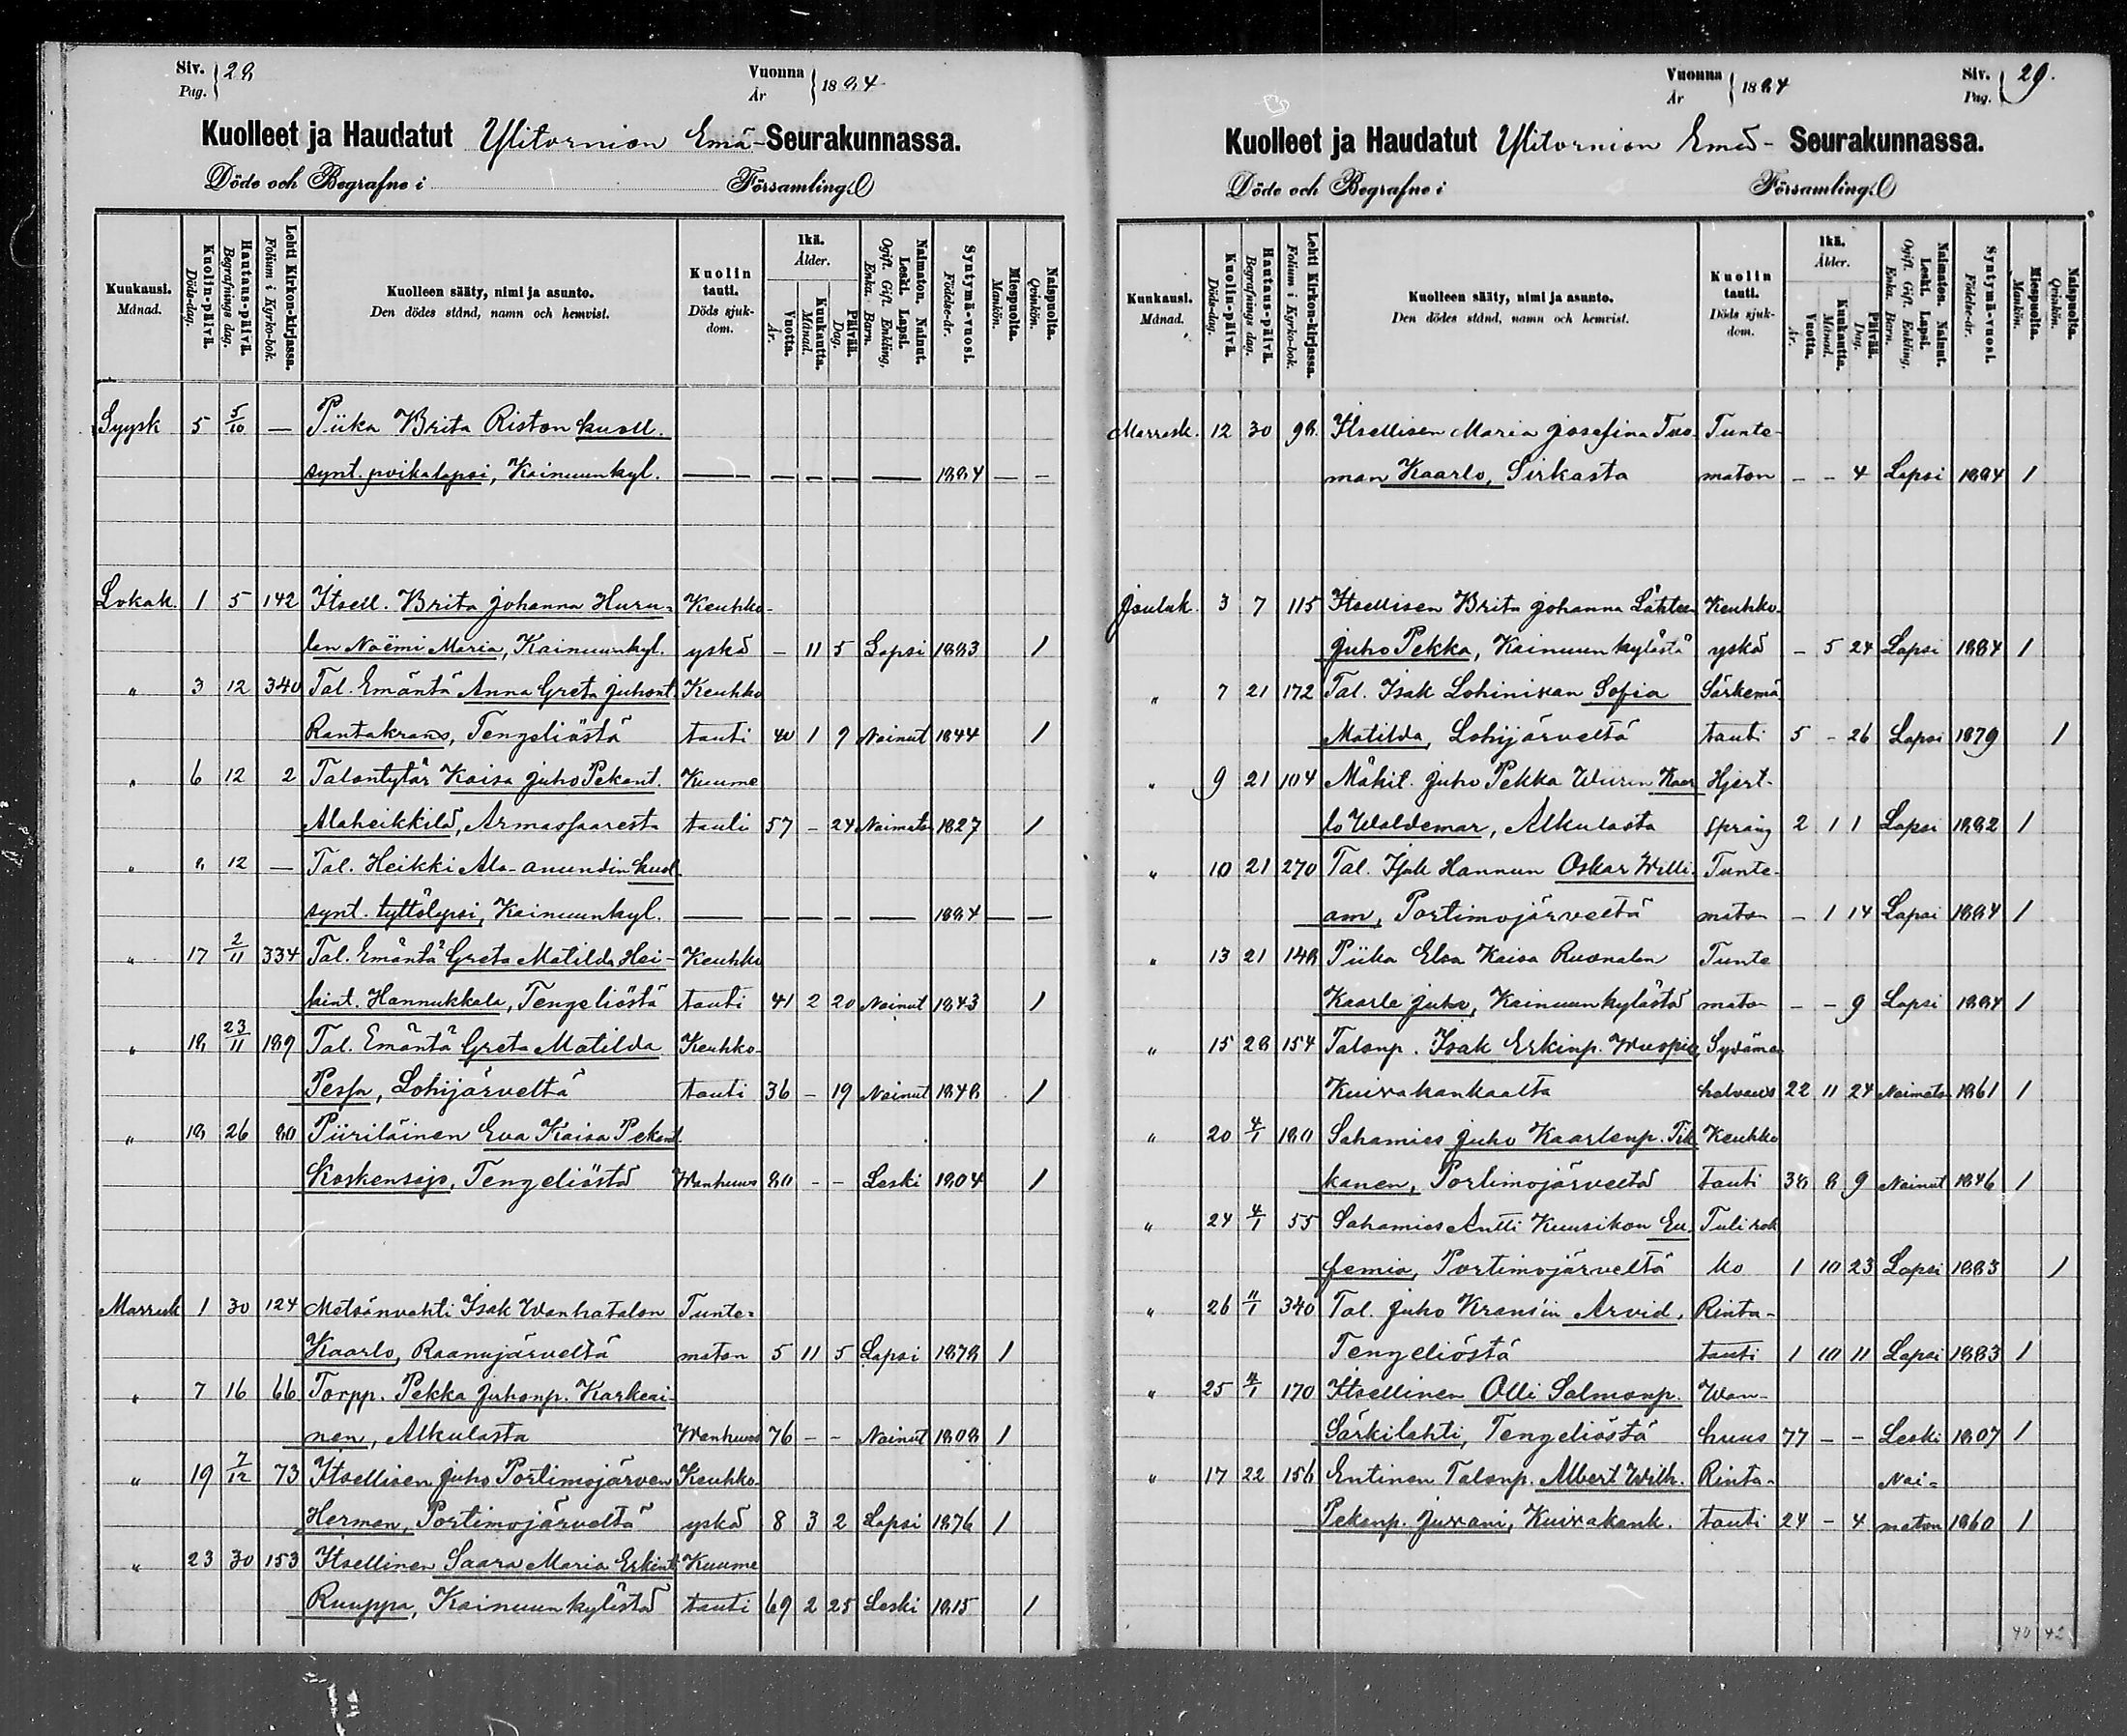 Siv. Pag. 28
Vuonna År 1884
Kuolleet ja Haudatut Ylitornion Emä-Seurakunnassa.
Döde och Begrafne i Församling.
Kuukausi. Månad.
Kuolin-päivä. Döds-dag.
Hautaus-päivä. Begrafnings dag.
Lehti Kirkon-kirjassa. Folium i Kyrko-bok.
Kuolleen sääty, nimi ja asunto. Den dödes stånd, namn och hemvist.
Kuolin tauti. Döds sjuk-dom.
Ikä. Ålder.
Vuotta. År.
Kuukautta. Månad.
Päivää. Dag.
Naimaton. Nainut. Leski. Lapsi. Ogift. Gift. Enkling, Enka. Barn.
Syntymä-vuosi. Födelse-år.
Miespuolta. Mankön.
Naispuolta. Qvinkön.
Syysk 5 5/10 — Piika Brita Riston kuoll.
synt. poikalapsi, Kainuunkyl. — — — — — 1884 — —
Lokak. 1 5 142 Itsell. Brita Johanna Huru- Keuhko-
len Noëmi Maria, Kainuunkyl. yskä - 11 5 Lapsi 1883 1
" 3 12 340 Tal. Emäntä Anna Greta Juhont. Keuhko
Rantakrans, Tengeliöstä tauti 40 1 9 Nainut 1844 1
" 6 12 2 Talontytär Kaisa Juho Pekant. Kuume
Alaheikkilä, Armassaaresta tauti 57 - 24 Naimato 1827 1
" 8 12 — Tal. Heikki Ala-anundin kuol.
synt. tyttölapsi, Kainuunkyl. — — — — — 1884 — —
" 17 2/11 334 Tal. Emäntä Greta Matilda Hei- Keuhko
kint. Hannukkala, Tengeliöstä tauti 41 2 20 Nainut 1843 1
" 18 23/11 189 Tal. Emäntä Greta Matilda Keuhko-
Pessa, Lohijärveltä tauti 36 - 19 Nainut 1848 1
" 18 26 80 Piiriläinen Eva Kaisa Pekant.
Koskensojo, Tengeliöstä Wanhuus 80 - - Leski 1804 1
Marrask 1 30 124 Metsänvahti Isak Wanhatalon Tunte-
Kaarlo, Raanujärveltä maton 5 11 5 Lapsi 1878 1
" 7 16 66 Torpp. Pekka Juhonp. Karkeai-
nen, Alkulasta Wanhuus 76 - - Nainut 1808 1
" 19 7/12 73 Itsellisen Juho Portimojärven Keuhko-
Herman, Portimojärveltä yskä 8 3 2 Lapsi 1876 1
" 23 30 153 Itsellinen Saara Maria Erkint. Kuume
Ruuppa, Kainuunkylästä tauti 69 2 25 Leski 1815 1
Vuonna År 1884
Siv. Pag. 29.
Kuolleet ja Haudatut Ylitornion Emä- Seurakunnassa.
Döde och Begrafne i Församling.
Kuukausi. Månad.
Kuolin-päivä. Döds-dag.
Hautaus-päivä. Begrafnings dag.
Lehti Kirkon-kirjassa. Folium i Kyrko-bok.
Kuolleen sääty, nimi ja asunto. Den dödes stånd, namn och hemvist.
Kuolin tauti. Döds sjuk-dom.
Ikä. Ålder.
Vuotta. År.
Kuukautta. Månad.
Päivää. Dag.
Naimaton. Nainut. Leski. Lapsi. Ogift. Gift. Enkling, Enka. Barn.
Syntymä-vuosi. Födelse-år.
Miespuolta. Mankön.
Naispuolta. Qvinkön.
Marrask. 12 30 98 Itsellisen Maria Josefina Tuo- Tunte-
man Kaarlo, Sirkasta maton - - 4 Lapsi 1884 1
Jouluk. 3 7 115 Itsellisen Brita Johanna Låhteen Keuhko-
Juho Pekka, Kainuunkylästä yskä - 5 24 Lapsi 1884 1
" 7 21 172 Tal. Isak Lohinivan Sofia Särkemä
Matilda, Lohijärveltä tauti 5 - 26 Lapsi 1879 1
" 9 21 104 Mäkit. Juho Pekka Wiiren Kaar Hjert-
lo Waldemar, Alkulasta språng 2 1 1 Lapsi 1882 1
" 10 21 270 Tal. Isak Hannun Oskar Willi- Tunte-
am, Portimojärveltä maton - 1 14 Lapsi 1884 1
" 13 21 148 Piika Elsa Kaisa Ruonalan Tunte
Kaarle Juho, Kainuunkylästä maton - - 9 Lapsi 1884 1
" 15 28 154 Talonp. Isak Erkinp. Wuopio Sydämen
Kuivakankaalta halvaus 22 11 24 Naimaton 1861 1
" 20 4/1 180 Sahamies Juho Kaarlenp. Tik Keuhko
kanen, Portimojärveltä tauti 38 8 9 Nainut 1846 1
" 24 4/1 55 Sahamies Antti Kuusikon Eu- Tulirok
femia, Portimojärveltä ko 1 10 23 Lapsi 1883 1
" 26 11/1 340 Tal. Juho Krans'in Arvid, Rinta-
Tengeliöstä tauti 1 10 11 Lapsi 1883 1
" 25 4/1 170 Itsellinen Olli Salmonp. Wan-
Särkilahti, Tengeliöstä huus 77 - - Leski 1807 1
" 17 22 156 Entinen Talonp. Albert Wilh. Rinta- Nai-
Pekanp. Juvani, Kuivakank. tauti 24 - 4 maton 1860 1
40 42